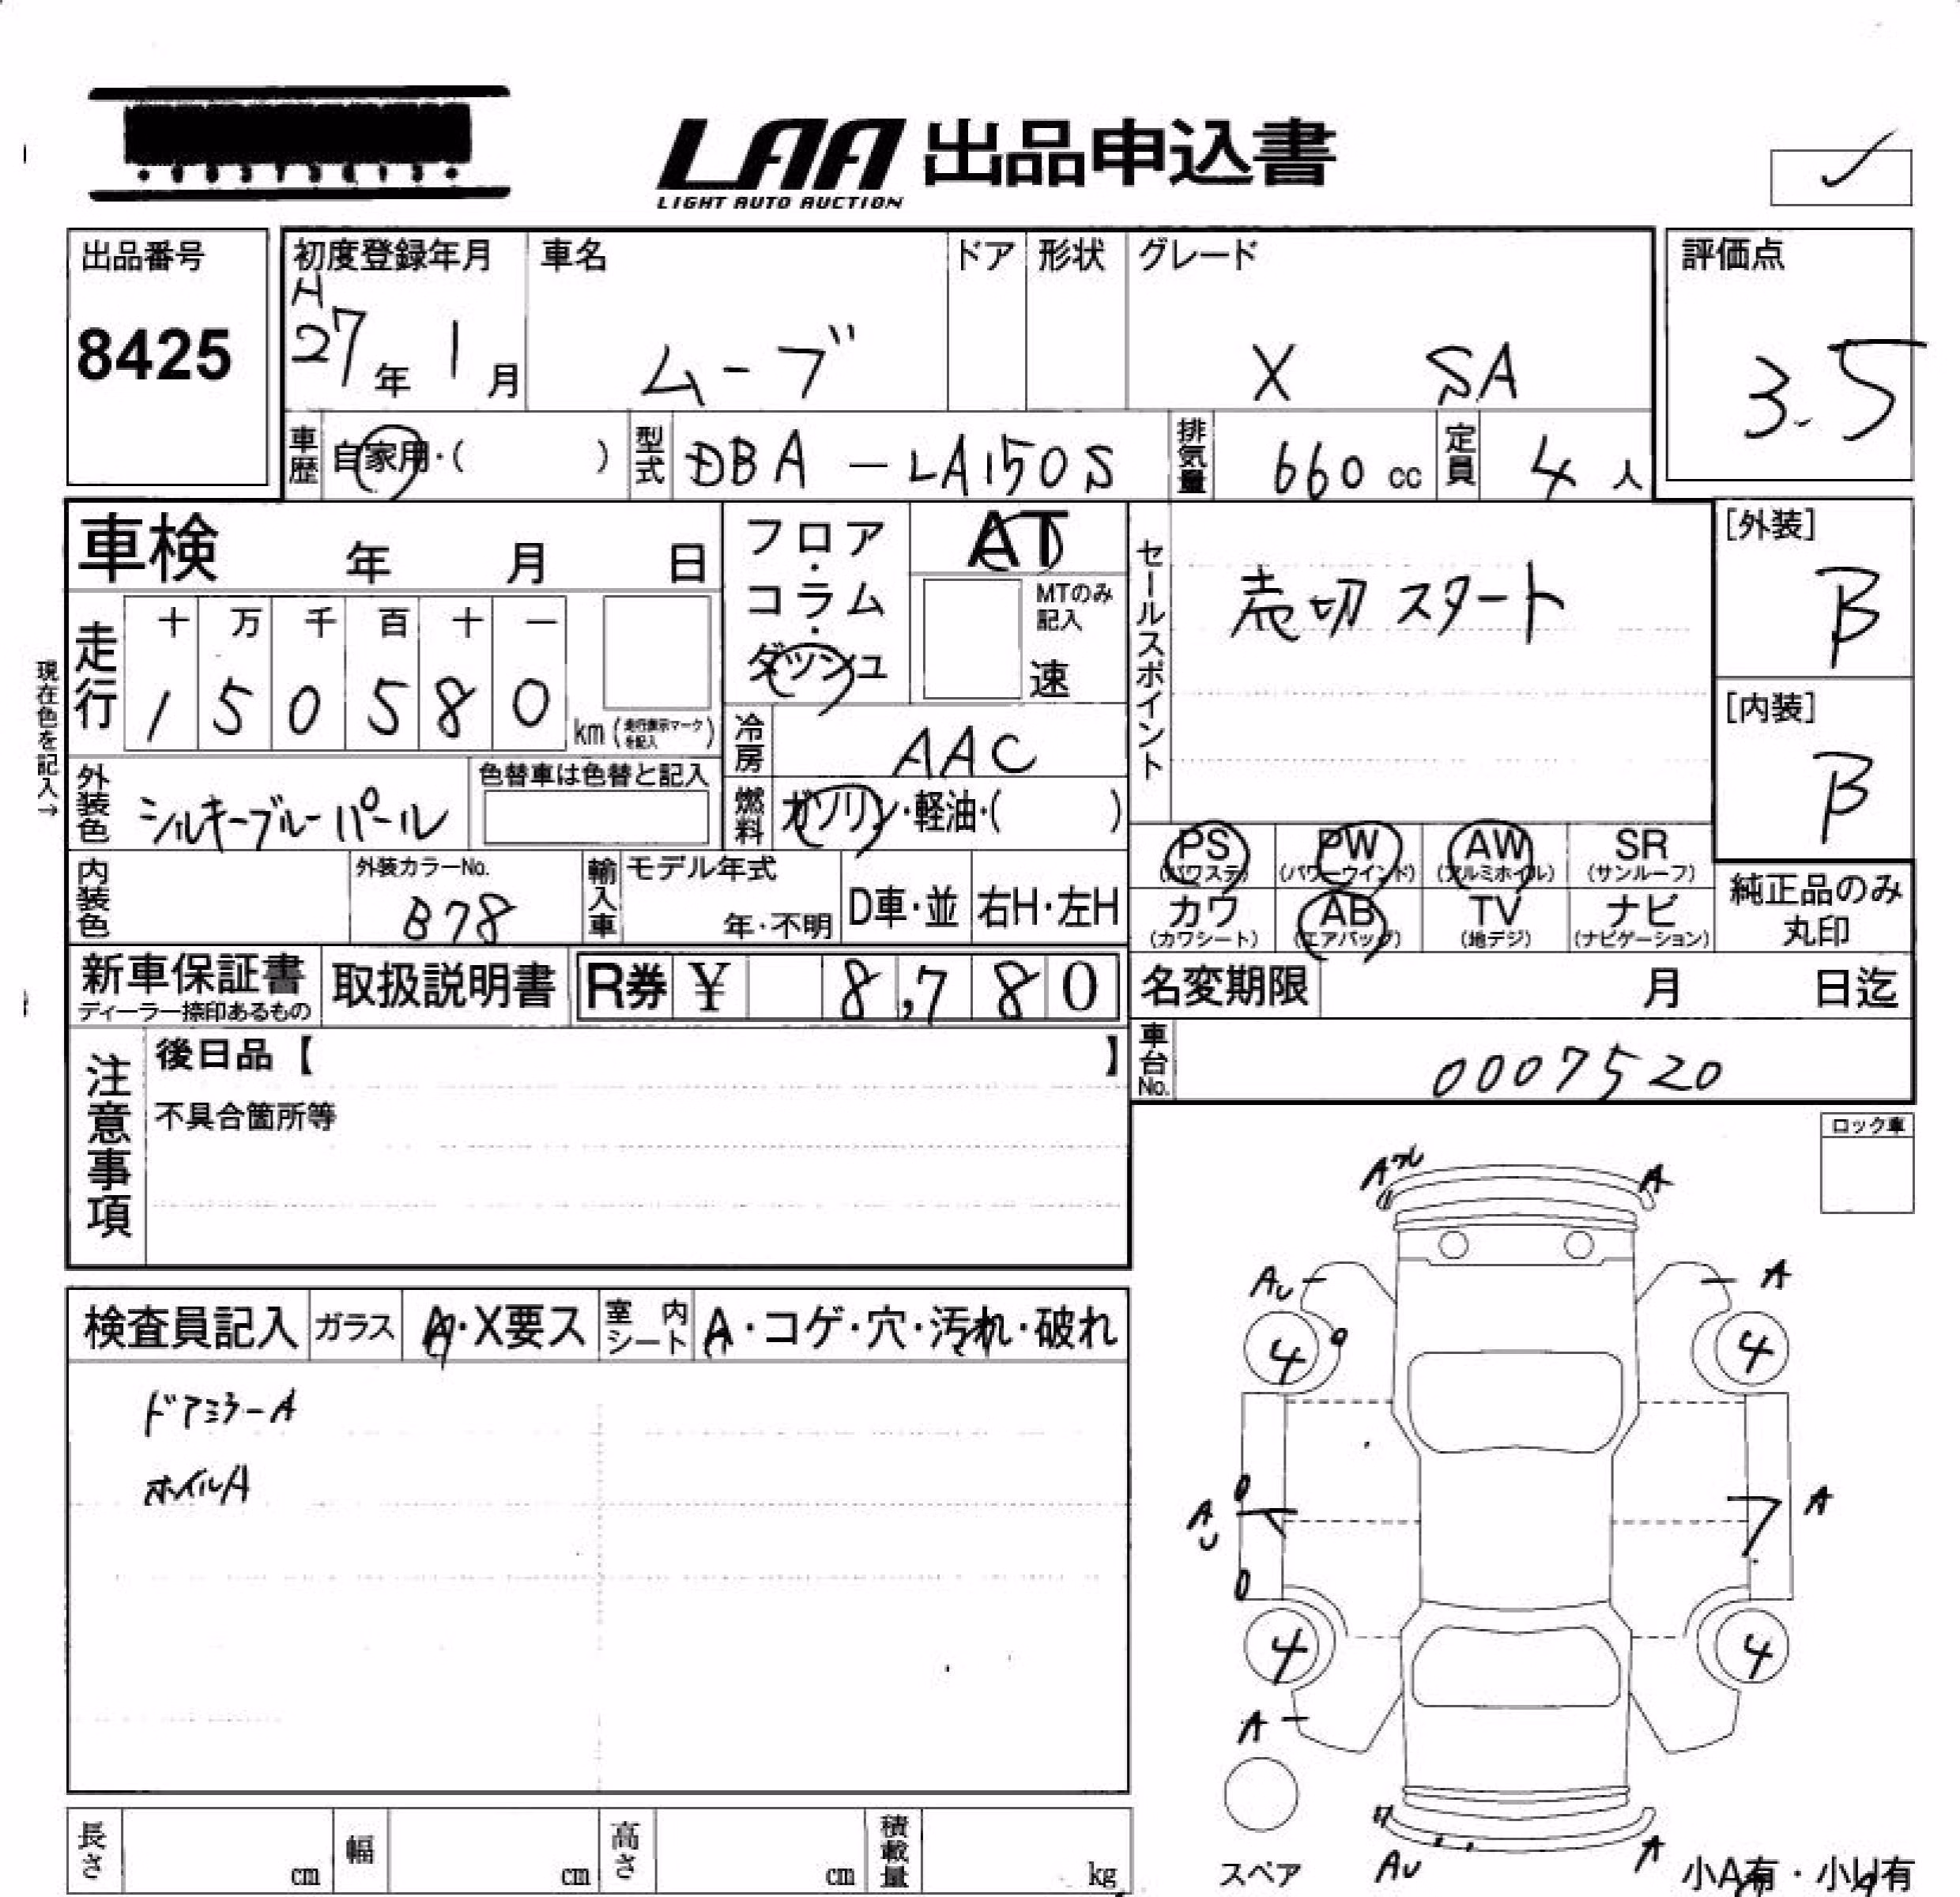 LAA 出品申込書
LIGHT AUTO AUCTION
出品番号
8425
初度登録年月
H
27年 1月
車名
ムーブ
ドア
形状
グレード
X SA
評価点
3.5
車歴
自家用・( )
型式
DBA - LA150S
排気量
660 cc
定員
4 人
車検 年 月 日
走行
十 万 千 百 十 一
1 5 0 5 8 0
km (走行表示マークを記入)
現在色を記入→
外装色
シルキーブルーパール
色替車は色替と記入
内装色
外装カラーNo.
B78
輸入車
モデル年式
年・不明
D車・並
右H・左H
フロア
・
コラム
・
ダッシュ
AT
MTのみ記入
速
冷房
AAC
燃料
ガソリン・軽油・( )
セールスポイント
売切スタート
[外装]
B
[内装]
B
PS (パワステ)
PW (パワーウインド)
AW (アルミホイル)
SR (サンルーフ)
カワ (カワシート)
AB (エアバッグ)
TV (地デジ)
ナビ (ナビゲーション)
純正品のみ
丸印
新車保証書
ディーラー捺印あるもの
取扱説明書
R券 ¥ 8,780
名変期限 月 日迄
車台No.
0007520
注意事項
後日品【 】
不具合箇所等
ロック車
検査員記入
ガラス
A・X要ス
室内シート
A・コゲ・穴・汚れ・破れ
ドアミラーA
ホイルA
A
AU
A
4
4
AU
A
4
4
A
AU
A
スペア
小A有・小U有
長さ cm
幅 cm
高さ cm
積載量 kg